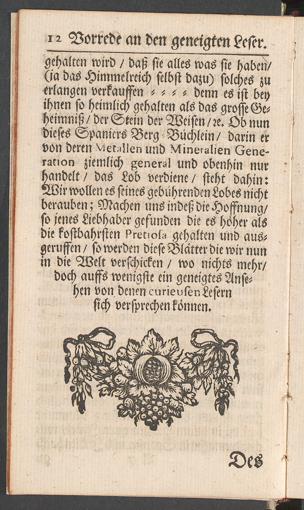 12 Vorrede an den geneigten Leser.
gehalten wird / daß sie alles was sie haben/
(ja das Himmelreich selbst dazu) solches zu
erlangen verkauffen = = = = denn es ist bey
ihnen so heimlich gehalten als das grosse Ge-
heimniß / der Stein der Weisen / ꝛc. Ob nun
dieses Spaniers Berg-Büchlein / darin er
von deren Metallen und Mineralien Gene-
ration ziemlich general und obenhin nur
handelt / das Lob verdiene / steht dahin:
Wir wollen es seines gebührenden Lobes nicht
berauben; Machen uns indeß die Hoffnung/
so jenes Liebhaber gefunden die es höher als
die kostbahrsten Pretiosa gehalten und aus-
geruffen / so werden diese Blätter die wir nun
in die Welt verschicken / wo nichts mehr/
doch auffs wenigste ein geneigtes Anse-
hen von denen curieusen Lesern
sich versprechen können.
Des